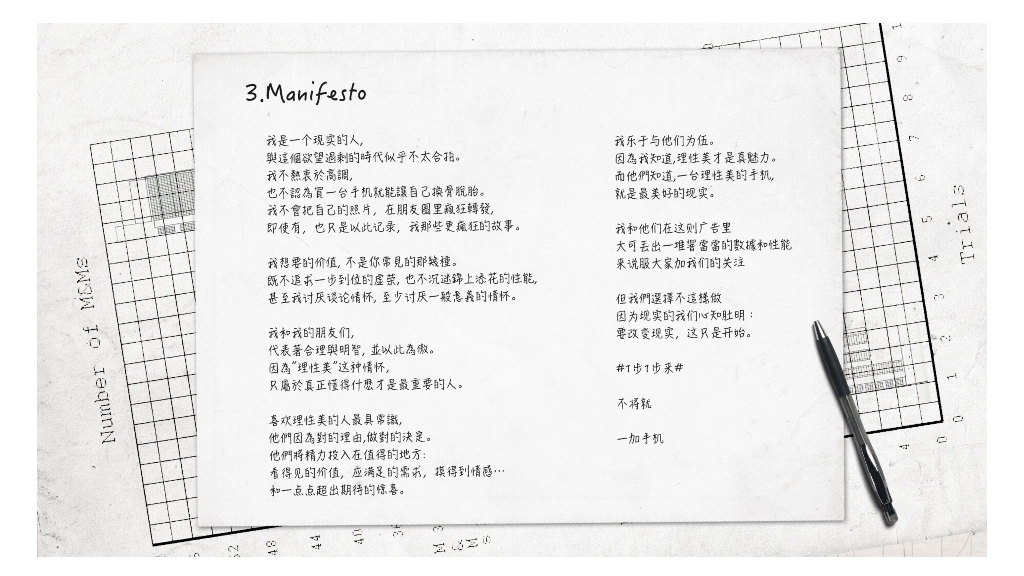 3.Manifesto
我是一个现实的人,
與這個欲望過剩的時代似乎不太合拍。
我不熱衷於高調,
也不認為買一台手机就能讓自己換骨脫胎。
我不會把自己的照片，在朋友圈里瘋狂轉發,
即使有，也只是以此记录，我那些更瘋狂的故事。
我想要的价值, 不是你常見的那幾種。
既不追求一步到位的虛荣, 也不沉迷錦上添花的性能,
甚至我讨厌谈论情怀, 至少讨厌一般意義的情怀。
我和我的朋友们,
代表著合理與明智, 並以此為傲。
因為"理性美"这种情怀,
只屬於真正懂得什麼才是最重要的人。
喜欢理性美的人最具常識,
他們因為對的理由,做對的決定。
他們將精力投入在值得的地方:
看得见的价值，应满足的需求，摸得到情感…
和一点点超出期待的惊喜。
我乐于与他们为伍。
因為我知道,理性美才是真魅力。
而他們知道,一台理性美的手机,
就是最美好的现实。
我和他们在这则广告里
大可丢出一堆響當當的數據和性能
来说服大家加我们的关注
但我們選擇不這樣做
因为现实的我们心知肚明：
要改变现实，这只是开始。
#1步1步来#
不将就
一加手机
Number of M&Ms
Trials
M & M s